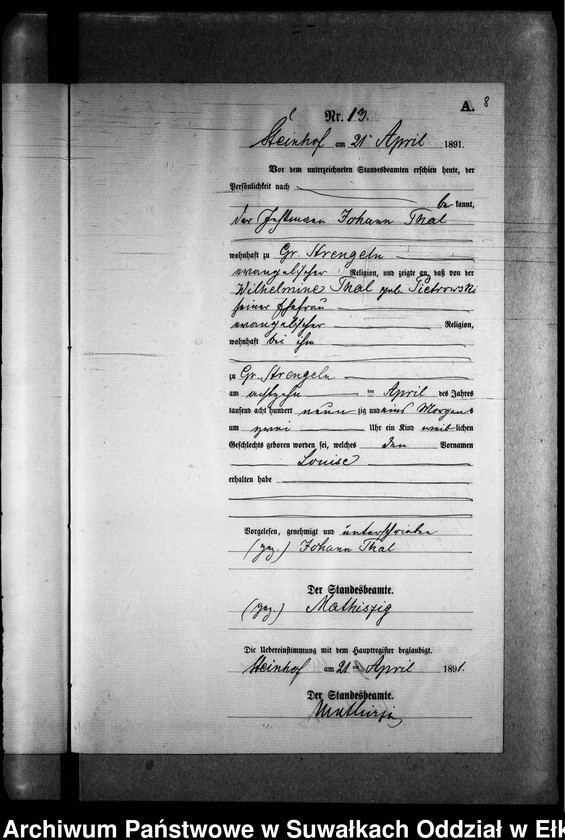 A. 8
Nr. 13.
Steinhof am 21 April 1891.
Vor dem unterzeichneten Standesbeamten erschien heute, der
Persönlichkeit nach
bekannt,
der Johann Thal
wohnhaft zu Gr. Strengeln
evangelischer Religion, und zeigte an, daß von der
Wilhelmine Thal geb. Pietrowski
seiner Ehefrau
evangelischer Religion,
wohnhaft bei ihm
zu Gr. Strengeln
am achtzehn ten April des Jahres
tausend acht hundert neun zig und eins Morgens
um zwei Uhr ein Kind weiblichen
Geschlechts geboren worden sei, welches den Vornamen
Louise
erhalten habe
Vorgelesen, genehmigt und unterschrieben
(gez.) Johann Thal
Der Standesbeamte.
(gez.) Mathiszig
Die Uebereinstimmung mit dem Hauptregister beglaubigt.
Steinhof am 21ten April 1891.
Der Standesbeamte.
Mathiszig
Archiwum Państwowe w Suwałkach Oddział w Ełk